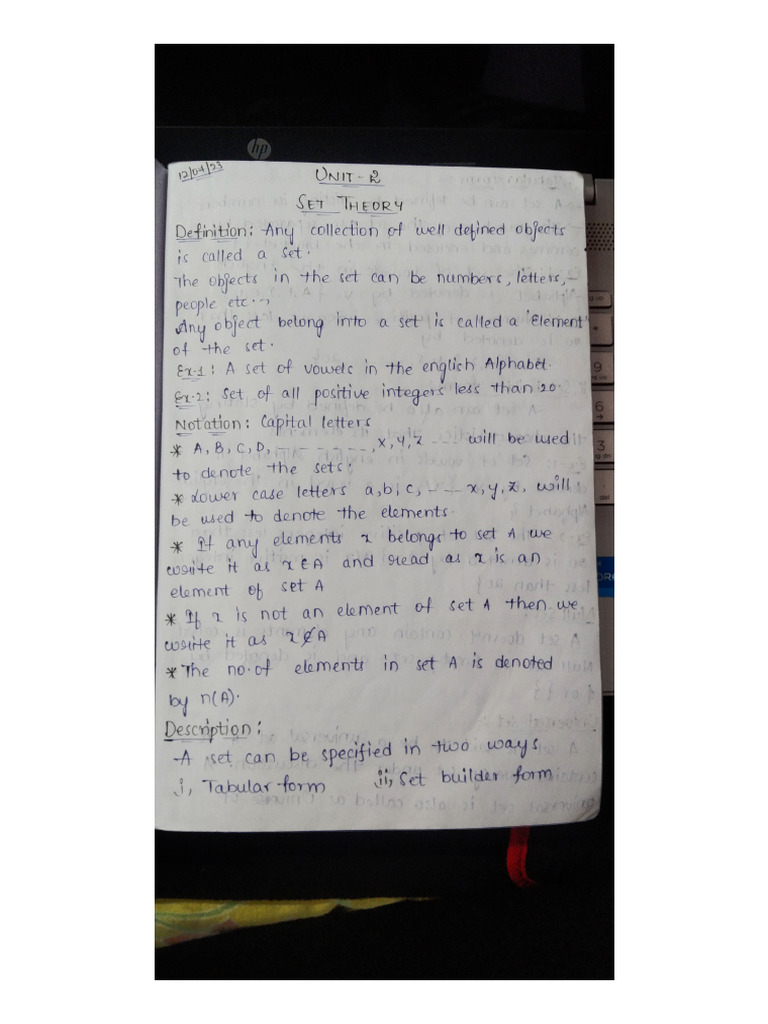 hp
12/04/23
UNIT-2
SET THEORY
Definition: Any collection of well defined objects
is called a set.
The objects in the set can be numbers, letters,
people etc.,
Any object belong into a set is called a 'Element'
of the set.
Ex-1: A set of vowels in the english Alphabet.
Ex-2: Set of all positive integers less than 20.
Notation: Capital letters
* A, B, C, D, --------, X, Y, Z --- will be used
to denote the sets.
* Lower case letters a, b, c, --- x, y, z, will
be used to denote the elements.
* If any elements x belongs to set A we
write it as x∈A and read as x is an
element of set A
* If x is not an element of set A then we
write it as x∉A
* The no. of elements in set A is denoted
by n(A).
Description:
A set can be specified in two ways
i, Tabular form ii, Set builder form
9
6
3
del